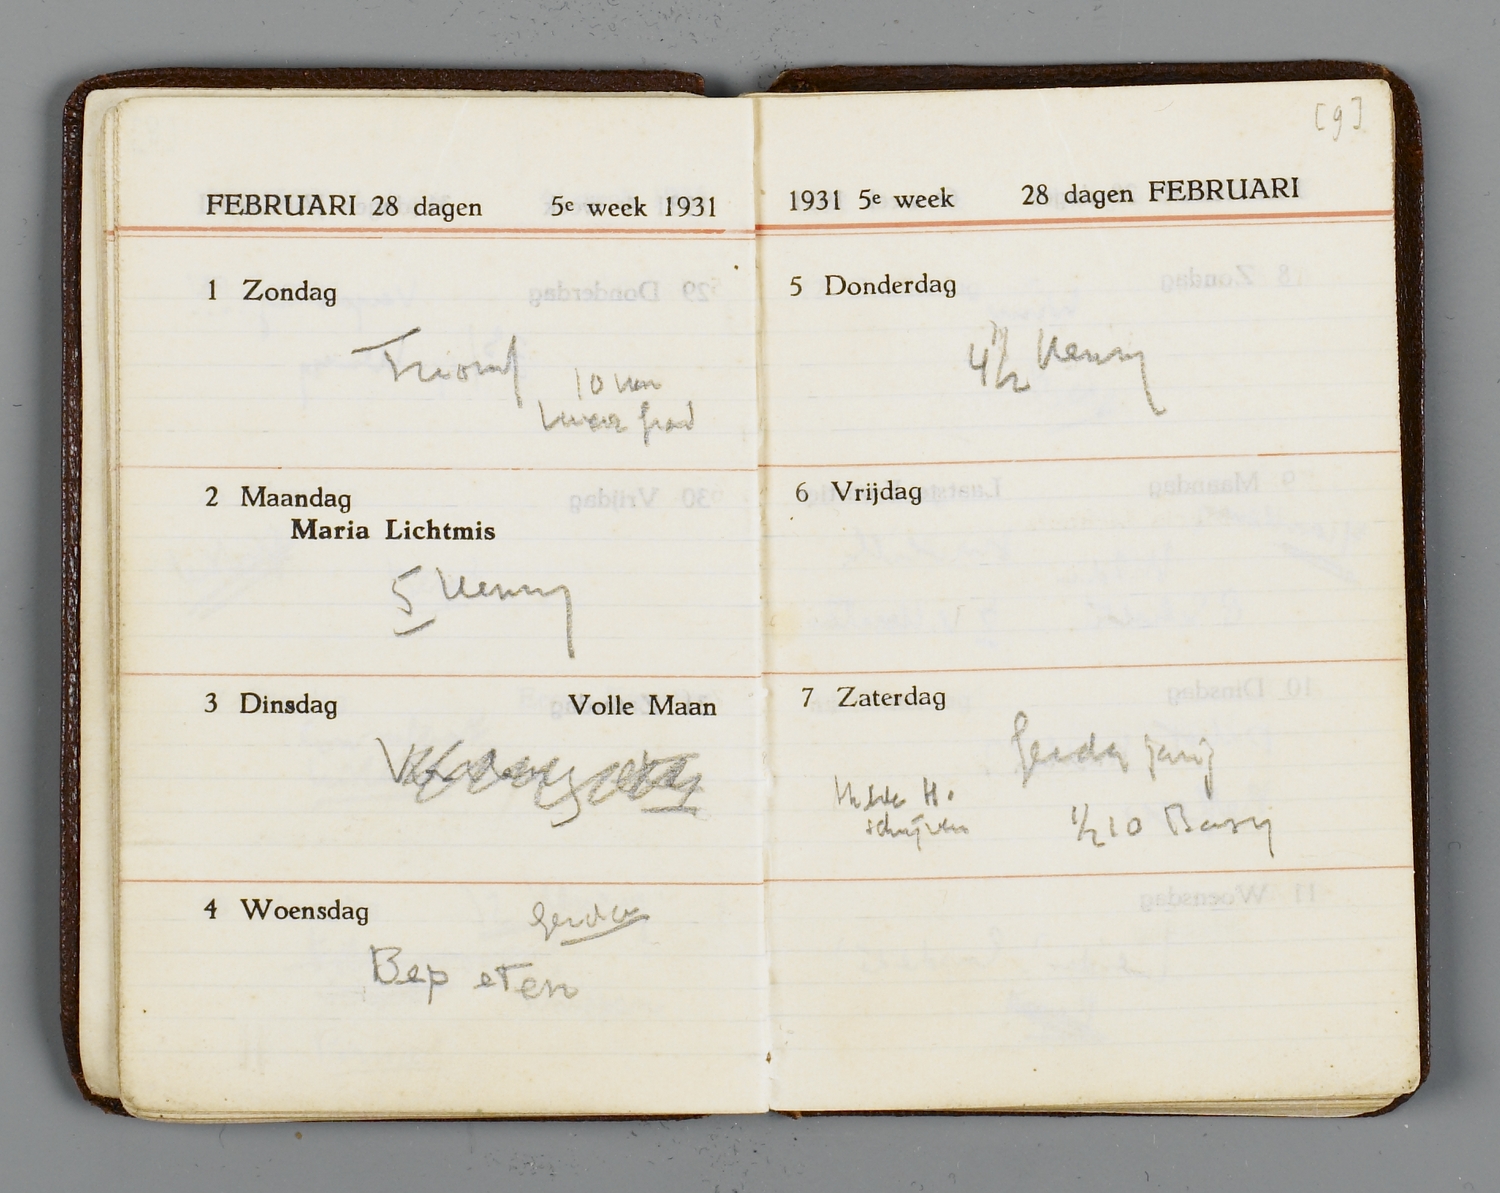 FEBRUARI 28 dagen 5e week 1931
1 Zondag
Triomf
10 uur
2 Maandag
Maria Lichtmis
5 Henny
3 Dinsdag Volle Maan
4 Woensdag Gerda
Bep eten
[9]
1931 5e week 28 dagen FEBRUARI
5 Donderdag
4 1/2 Henny
6 Vrijdag
7 Zaterdag
Gerda jarig
Hilde H.
schrijven
1/2 10